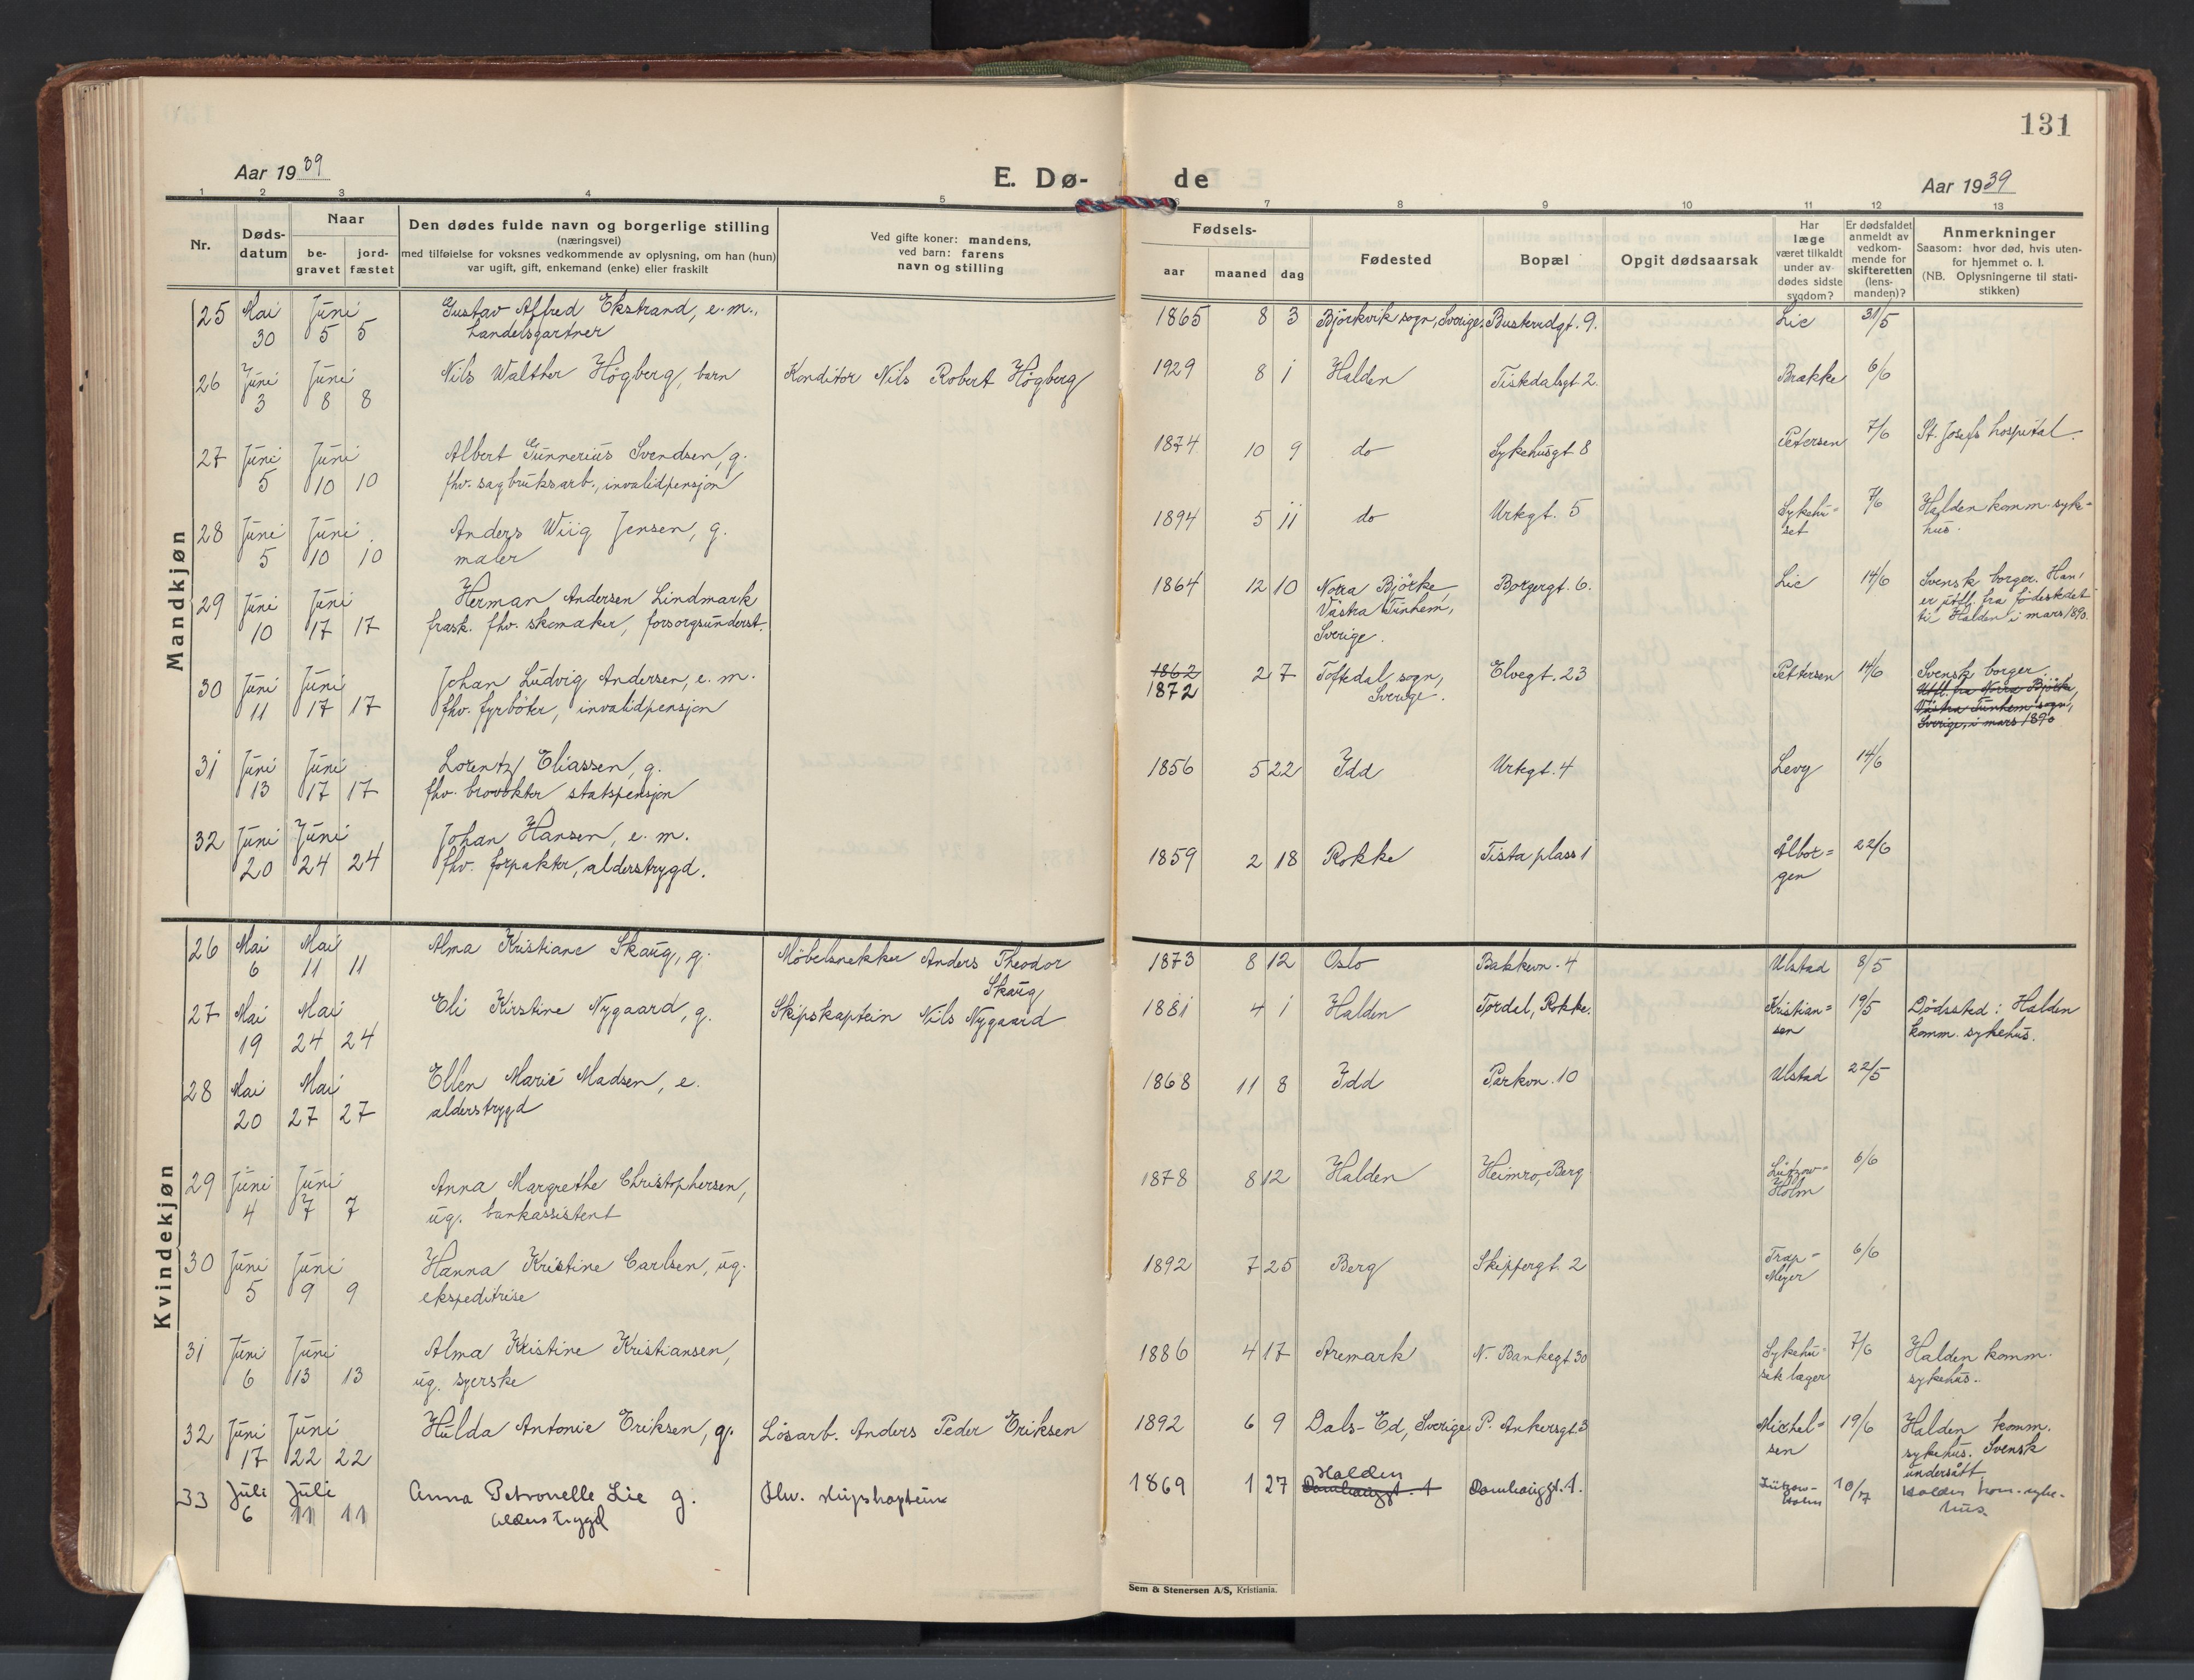 131
Aar 1939
E. Dø-
de
Aar 1939
1 2 3 4 5 6 7 8 9 10 11 12 13
Nr.
Døds-
datum
Naar
be-
gravet
jord-
fæstet
Den dødes fulde navn og borgerlige stilling
(næringsvei)
med tilføielse for voksnes vedkommende av oplysning, om han (hun)
var ugift, gift, enkemand (enke) eller fraskilt
Ved gifte koner: mandens,
ved barn: farens
navn og stilling
Fødsels-
aar
maaned
dag
Fødested
Bopæl
Opgit dødsaarsak
Har
læge
været tilkaldt
under av-
dødes sidste
sygdom?
Er dødsfaldet
anmeldt av
vedkom-
mende for
skifteretten
(lens-
manden)?
Anmerkninger
Saasom: hvor død, hvis uten-
for hjemmet o. l.
(NB. Oplysningerne til stati-
stikken)
Mandkjøn
25 Mai Juni Gustav Alfred Ekstrand, e.m., 1865 8 3 Björkvik sogn, Sverige. Buskerudgt. 9. Lie 31/5
30 5 5 handelsgartner
26 Juni Juni Nils Walther Högberg, barn Konditor Nils Robert Högberg 1929 8 1 Halden Tistedalsgt. 2. Brække 6/6
3 8 8
27 Juni Juni Albert Gunnerius Svendsen, g. 1874 10 9 do Sykehusgt 8 Petersen 7/6 St. Josefs hospital.
5 10 10 fhv. sagbruksarb., invalidpensjon
28 Juni Juni Anders Wiig Jensen, g. 1894 5 11 do Urtegt. 5 Sykehu= 7/6 Halden komm. syke-
5 10 10 maler set hus.
29 Juni Juni Herman Andersen Lindmark 1864 12 10 Norra Björke, Borgergt. 6. Lie 14/6 Svensk borger. Han
10 17 17 frask. fhv. skomaker, forsorgsunderst. Västra Tunhem, er utfl. fra fødestedet
Sverige. til Halden i mars 1890.
30 Juni Juni Johan Ludvig Andersen, e.m. 1862 2 7 Töftedal sogn, Elvegt. 23 Pettersen 14/6 Svensk borger
11 17 17 fhv. fyrbøter, invalidpensjon 1872 Sverige. Utfl. fra Norra Björke,
Västra Tunhem sogn,
Sverige, i mars 1890
31 Juni Juni Lorentz Eliassen, g. 1856 5 22 Idd Urtegt. 4 Levy 14/6
13 17 17 fhv. brovokter statspensjon
32 Juni Juni Johan Hansen, e.m. 1859 2 18 Rokke Tista plass 1 Ålbor= 22/6
20 24 24 fhv. forpakter, alderstrygd. gen
Kvindekjøn
26 Mai Mai Alma Kristiane Skaug, g. Möbelsnekker Anders Theodor 1873 8 12 Oslo Bakkevn. 4 Ulstad 8/5
6 11 11 Skaug
27 Mai Mai Eli Kirstine Nygaard, g. Skipskaptein Nils Nygaard 1881 4 1 Halden Tordal, Rokke. Kristian= 19/5 Dödssted: Halden
19 24 24 sen komm. sykehus.
28 Mai Mai Ellen Marie Madsen, e. 1868 11 8 Idd Parkvn. 10 Ulstad 22/5
20 27 27 alderstrygd
29 Juni Juni Anna Margrethe Christophersen, 1878 8 12 Halden Heimro, Berg Lützow- 6/6
4 7 7 ug. bankassistent Holm
30 Juni Juni Hanna Kristine Carlsen, ug. 1892 7 25 Berg Skippergt. 2 Trap- 6/6
5 9 9 ekspeditrise Meyer
31 Juni Juni Alma Kristine Kristiansen, 1886 4 17 Aremark N. Bankegt 30 Sykehu= 7/6 Halden komm.
6 13 13 ug. syerske sets læger sykehus.
32 Juni Juni Hulda Antonie Eriksen, g. Lösarb. Anders Peder Eriksen 1892 6 9 Dals-Ed, Sverige P. Ankersgt. 3 Michel= 19/6 Halden komm.
17 22 22 sen sykehus. Svensk
undersått
33 Juli Juli Anna Petronelle Lie g. fhv. skipskaptein 1869 1 27 Halden Damhauggt. 1. Lützow- 10/7 Halden kom. syke-
6 11 11 alderstrygd Damhauggt. 1 Holm hus.
Sem & Stenersen A/S, Kristiania.